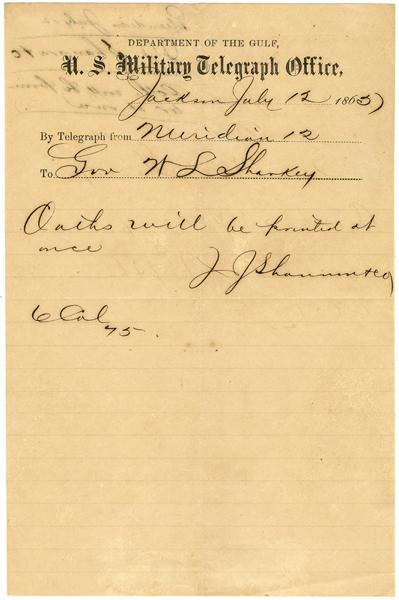 DEPARTMENT OF THE GULF,
U. S. Military Telegraph Office,
Jackson July 12 1865
By Telegraph from Meridian 12
To Gov W L Sharkey
Oaths will be printed at
once
J J Shannon & Co
6 Col
75.